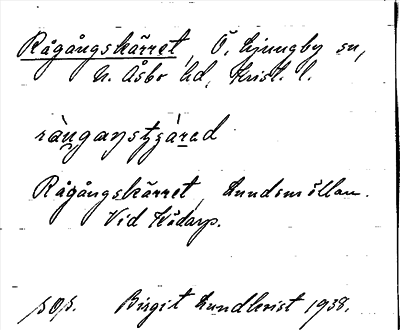 Rågångskärret, Ö. Ljungby sn,
N. Åsbo hd, Krist. l.
Rågångskärret, Lundsmöllan.
Vid Ködarp.
sop. Birgit Lundkvist 1938.